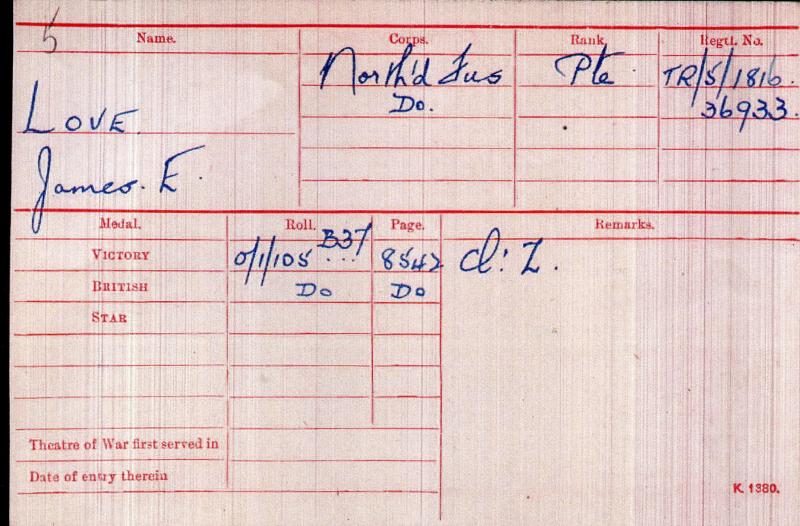 5
Name. Corps. Rank. Regtl. No.
North'd Fus Pte TR/5/1816.
Do. 36933.
LOVE.
James. E.
Medal. Roll. Page. Remarks.
B37
VICTORY 0/1/105 ... 8542 Cl: Z.
BRITISH Do Do
STAR
Theatre of War first served in
Date of entry therein
K. 1380.